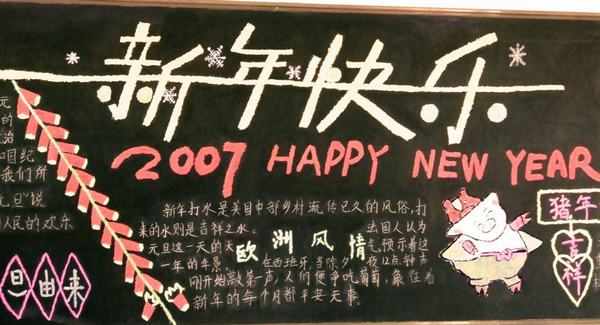 新年快乐
2007 HAPPY NEW YEAR
元
的
治
和国纪
我们所
元旦"说
人民的欢乐
旦由来
新年打水是英国中部乡村流传已久的风俗,打
来的水则是吉祥之水。
元旦这一天的天
一年的年景
欧洲风情
法国人认为
气预示着这
在西班牙,当除夕夜12点钟声
刚开始敲第一声,人们便争吃葡萄,象征着
新年的每个月都平安无事
猪年
吉祥